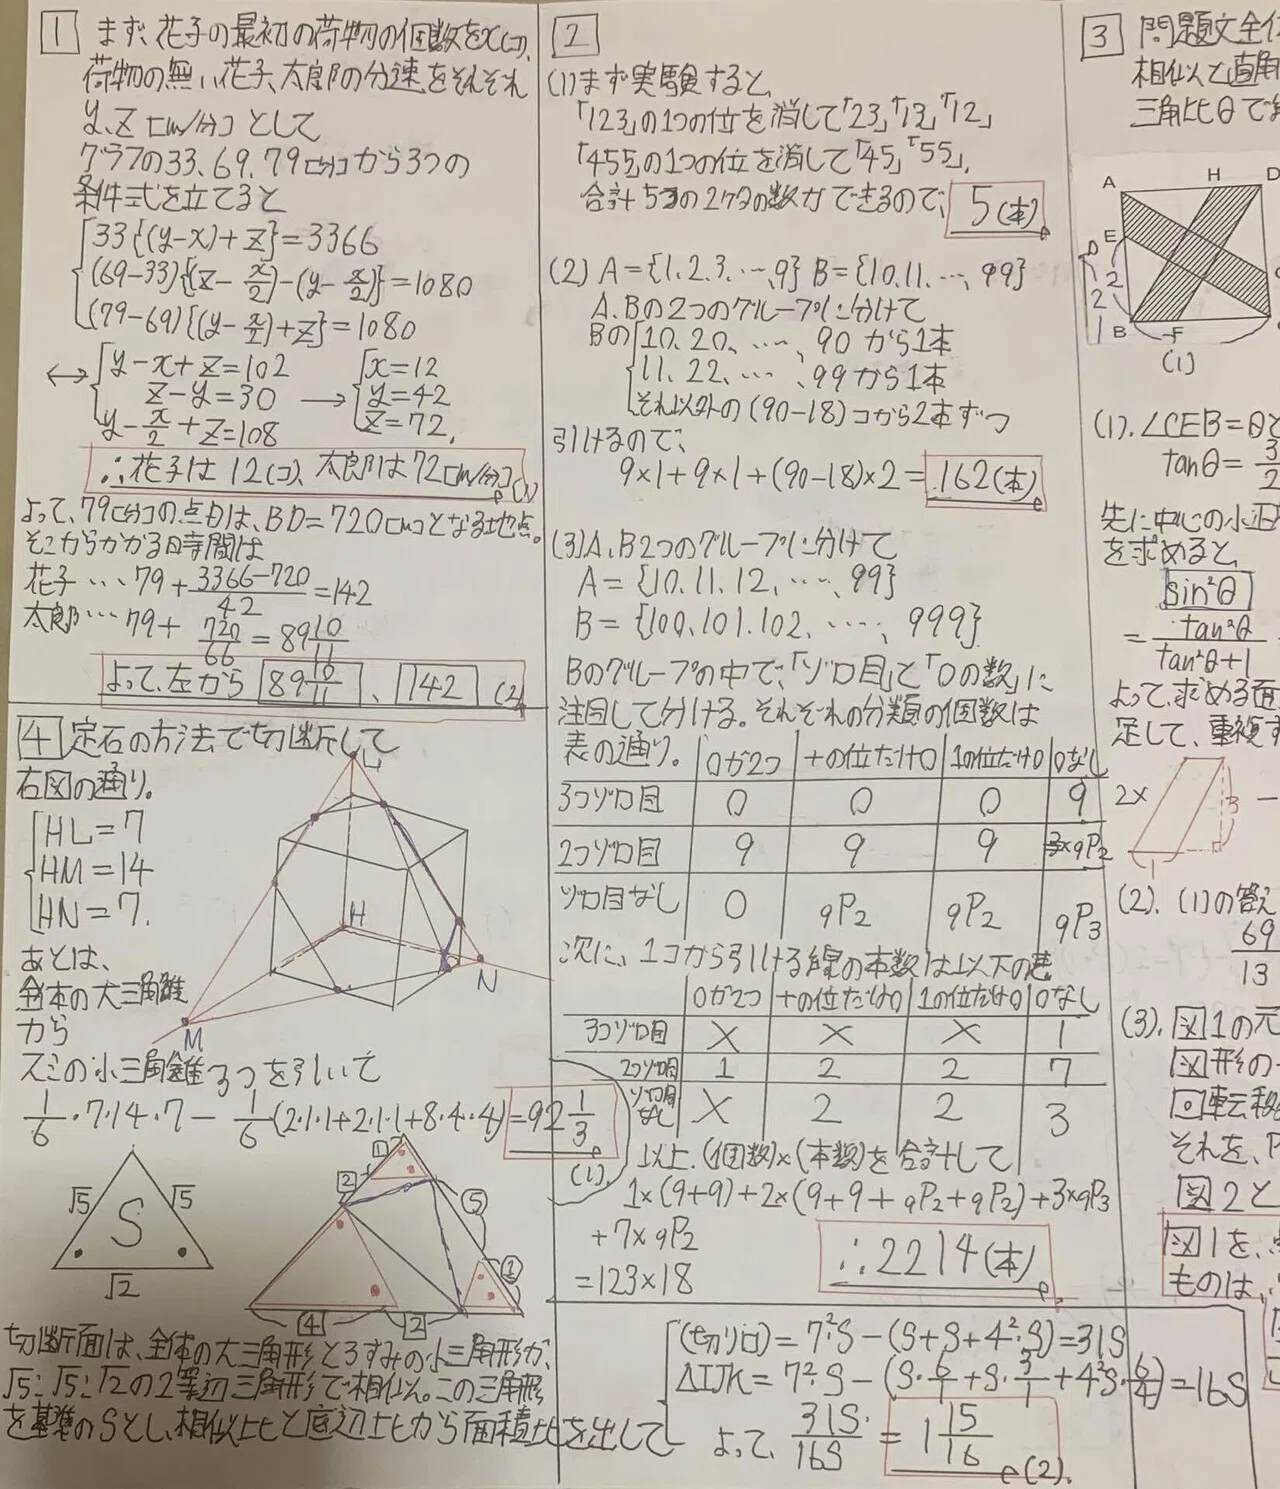 1 まず、花子の最初の荷物の個数をx(コ)、
荷物の無い花子、太郎の分速をそれぞれ
y、z[m/分]として
グラフの33、69、79[分]から3つの
条件式を立てると
33{(y-x)+z}=3366
(69-33){(z-x/2)-(y-x/2)}=1080
(79-69){(y-x/2)+z}=1080
↔ y-x+z=102
z-y=30
y-x/2+z=108
→ x=12
y=42
z=72,
∴花子は12(コ)、太郎は72[m/分] (1)
よって、79[分]の点Bは、BD=720[m]となる地点。
そこからかかる時間は
花子…79+(3366-720)/42=142
太郎…79+720/66=89 10/11
よって、左から 89 10/11、142 (2)
2
(1)まず実験すると、
「123」の1つの位を消して「23」「13」「12」
「455」の1つの位を消して「45」「55」,
合計5つの2ケタの数ができるので、5(本)
(2) A={1.2.3.…,9} B={10.11.…,99}
A.Bの2つのグループに分けて
Bの 10、20、…、90 から1本
11、22、…、99から1本
それ以外の(90-18)コから2本ずつ
引けるので、
9×1+9×1+(90-18)×2=162(本)
(3)A、B2つのグループに分けて
A={10.11.12、…、99}
B={100、101.102、…、999}
Bのグループの中で、「ゾロ目」と「0の数」に
注目して分ける。それぞれの分類の個数は
表の通り。 0が2つ 十の位だけ0 1の位だけ0 0なし
3つゾロ目 0 0 0 9
2つゾロ目 9 9 9 3×9P2
ゾロ目なし 0 9P2 9P2 9P3
次に、1コから引ける線の本数は以下の表
0が2つ 十の位だけ0 1の位だけ0 0なし
3つゾロ目 × × × 1
2つゾロ目 1 2 2 7
ゾロ目なし × 2 2 3
以上、(個数)×(本数)を合計して
1×(9+9)+2×(9+9+9P2+9P2)+3×9P3
+7×9P2
=123×18
∴2214(本)
3 問題文全
相似と直角
三角比θで
A H D
E
B F
2
2
1
(1)
(1).∠CEB=θと
tanθ=3/2
先に中心の小正
を求めると、
sin²θ
=tan²θ/(tan²θ+1)
よって、求める面
足して、重複
2x 3
(2).(1)の答え
69/13
(3).図1の元
図形の
回転移
それを、
図2と
図1を、
ものは、
4 定石の方法で切断して
右図の通り。
HL=7
HM=14
HN=7.
L
H
N
M
あとは、
全体の大三角錐
から
スミの小三角錐3つを引いて
1/6・7・14・7-1/6(2・1・1+2・1・1+8・4・4)=92 1/3 (1).
√5 √5
S
√2
1 2 5 2 4 2
切断面は、全体の大三角形と3すみの小三角形が、
√5:√5:√2の2等辺三角形で相似。この三角形
を基準のSとし、相似比と底辺比から面積比を出して
(切り口)=7²・S-(S+S+4²・S)=31S
△IJK=7²・S-(S・6/1+S・3/1+4²S・6/4)=16S
よって、31S/16S=1 15/16 (2).